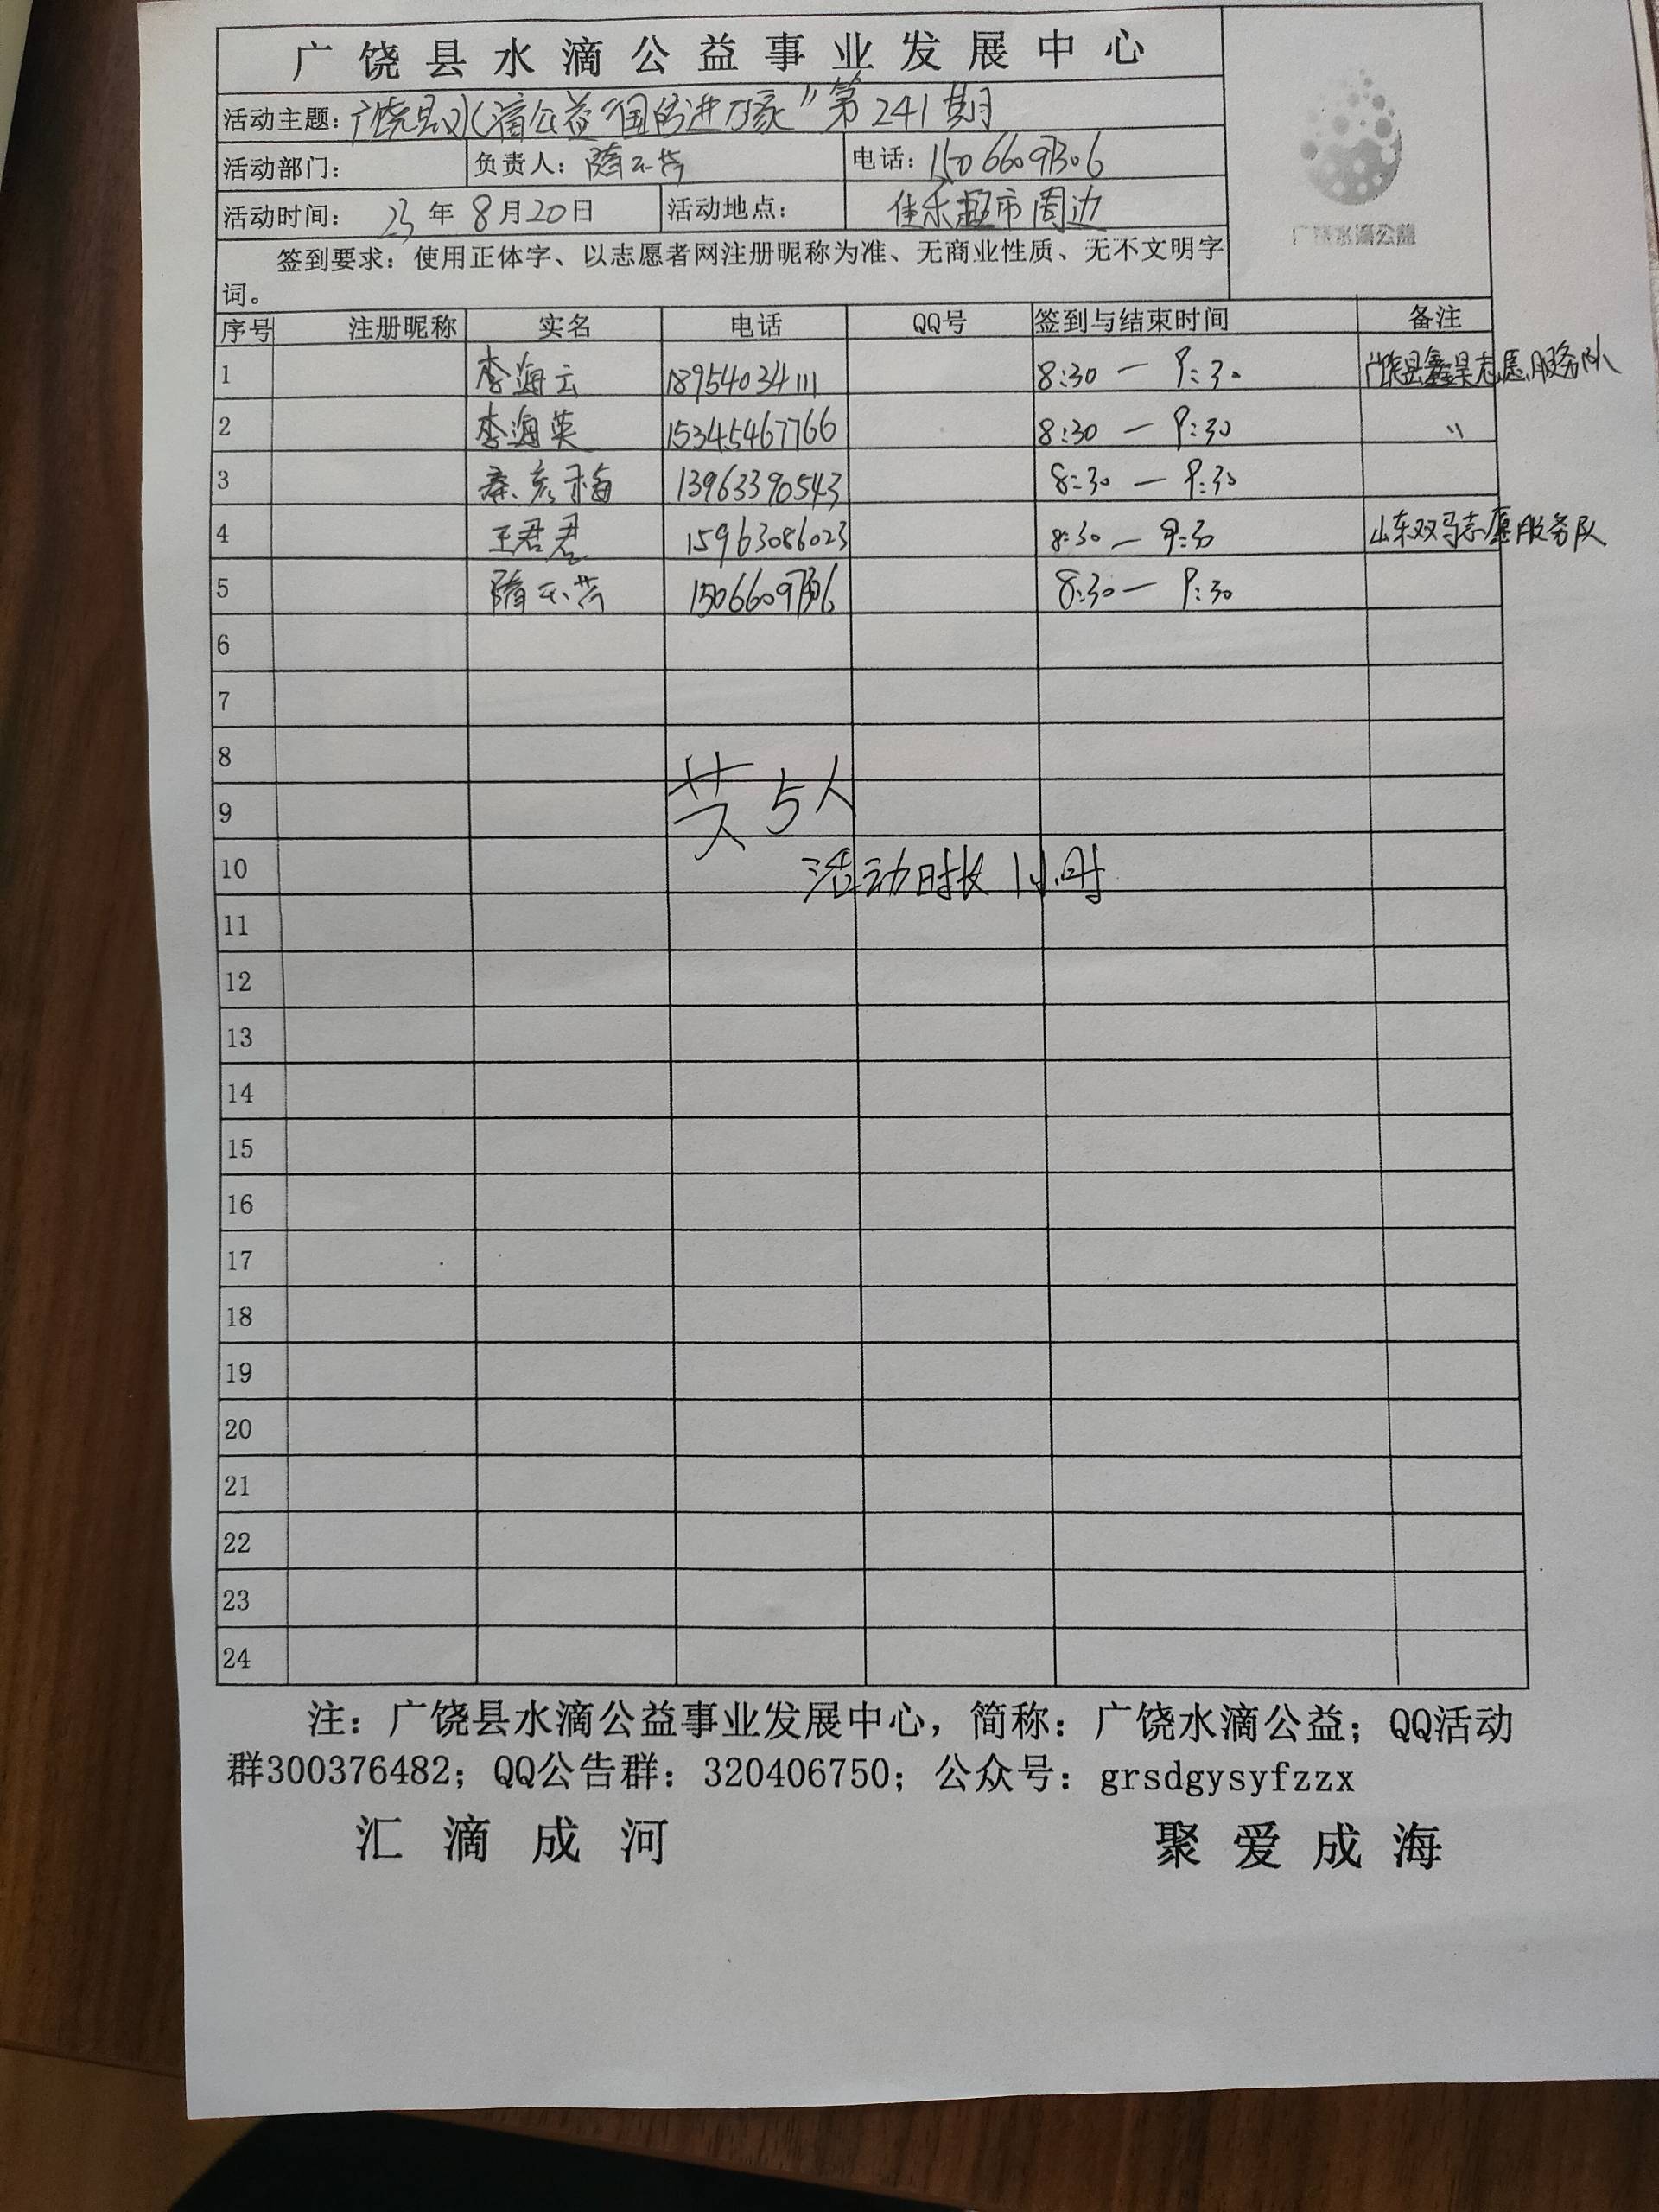 广饶县水滴公益事业发展中心
活动主题：广饶县水滴公益“国防进万家”第241期
活动部门： 负责人： 电话：15066097306
活动时间： 23年8月20日 活动地点： 佳乐超市周边
广饶水滴公益
签到要求：使用正体字、以志愿者网注册昵称为准、无商业性质、无不文明字
词。
序号 注册昵称 实名 电话 QQ号 签到与结束时间 备注
1 李海云 18954034111 8:30 — 9:30 广饶县鑫昊志愿服务队
2 李海英 15345467766 8:30 — 9:30 〃
3 13963390543 8:30 — 9:30
4 王君君 15963086023 8:30 — 9:30 山东双马志愿服务队
5 15066097306 8:30 — 9:30
6
7
8
共5人
9
10
活动时长1小时
11
12
13
14
15
16
17
18
19
20
21
22
23
24
注：广饶县水滴公益事业发展中心，简称：广饶水滴公益；QQ活动
群300376482；QQ公告群：320406750；公众号：grsdgysyfzzx
汇滴成河 聚爱成海